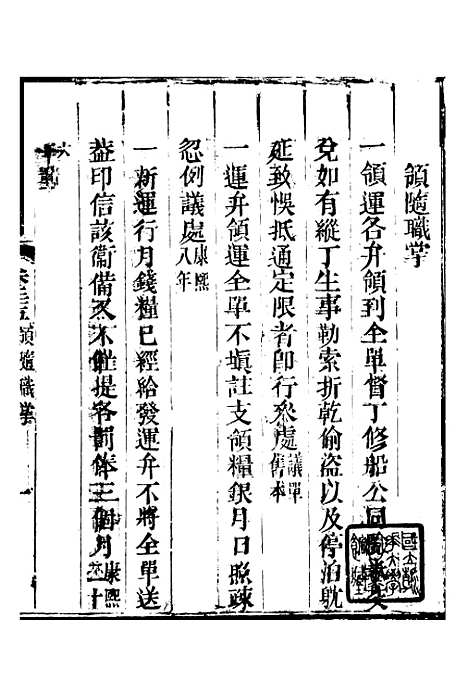 領隨職掌
一領運各弁領到全單督丁修船公同
兌如有縱丁生事勒索折乾偷盜以及停泊躭
延致悞抵通定限者卽行叅處議單舊本
一運弁領運全單不塡註支領糧銀月日照疎
忽例議處康熙八年
一新運行月錢糧已經給發運弁不將全單送
盖印信該衞備又不催提各罰俸三個月康熙二十
六年
領隨職掌